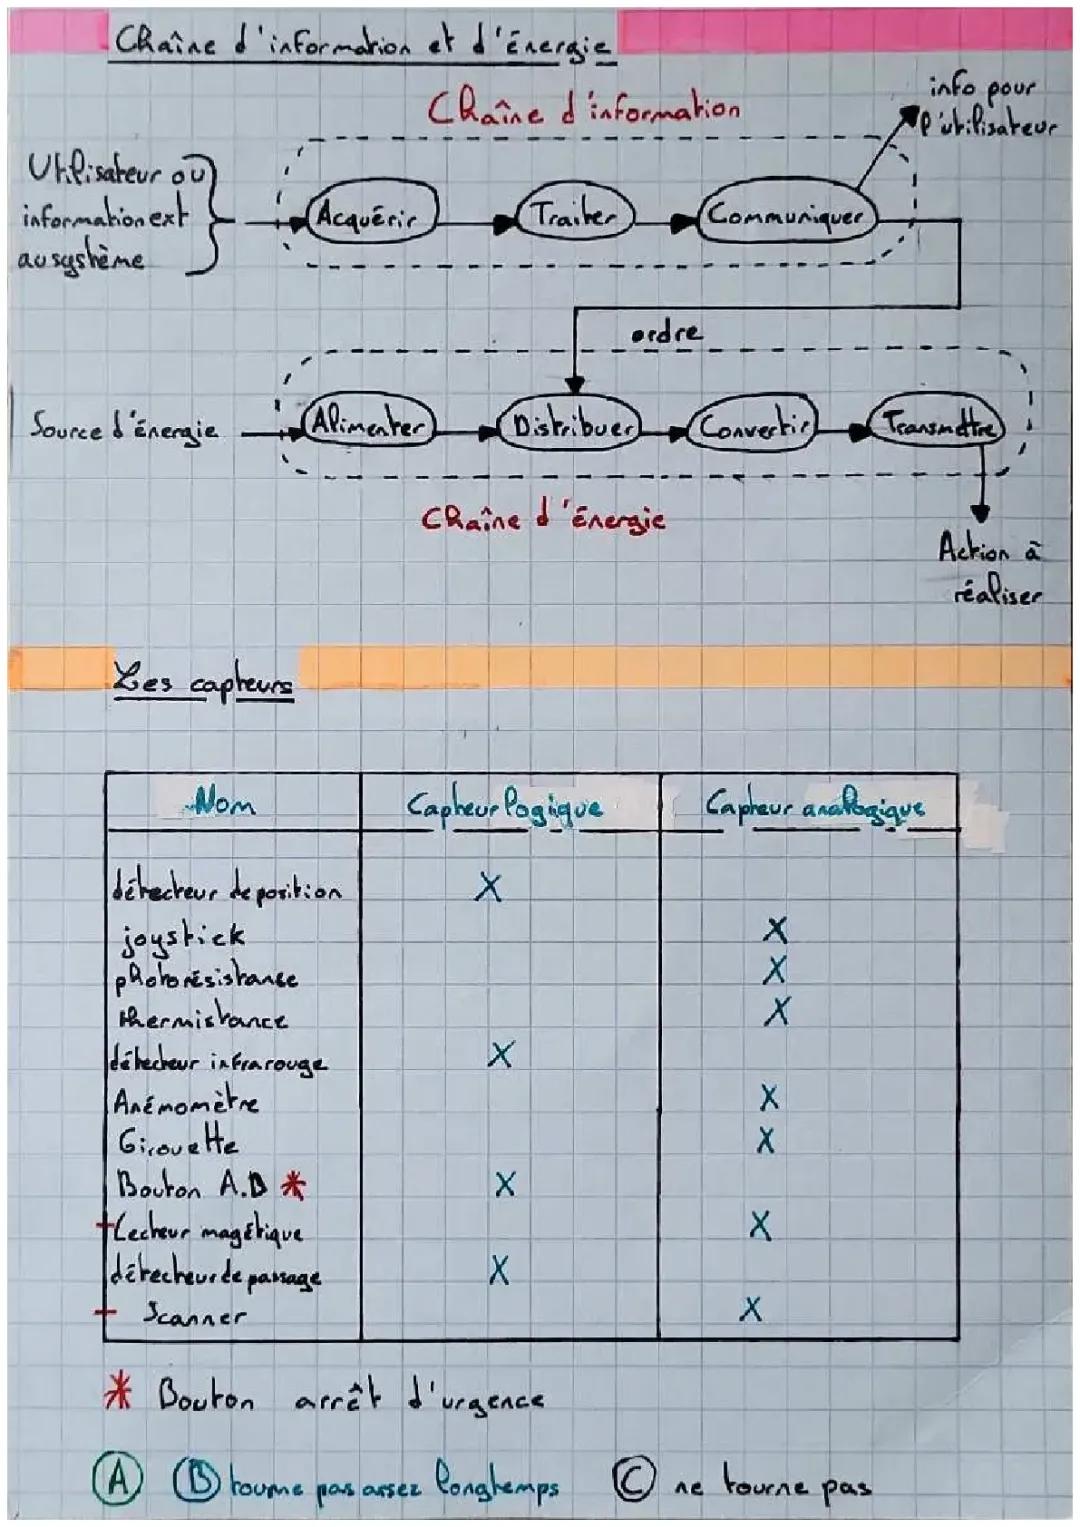 Chaîne d'information et d'énergie
Chaîne d'information
info pour
l'utilisateur
Utilisateur où
information ext
au système
Acquérir
Traiter
Communiquer
ordre
Source d'énergie
Alimenter
Distribuer
Convertir
Transmettre
Chaîne d'énergie
Action à
réaliser
Les capteurs
Nom
Capteur logique
Capteur analogique
détecteur de position X
joystick X
photorésistance X
thermistance X
détecteur infrarouge X
Anémomètre X
Girouette X
Bouton A.D * X
+ Lecteur magétique X
détecteur de passage X
+ Scanner X
* Bouton arrêt d'urgence
A B tourne pas assez longtemps C ne tourne pas